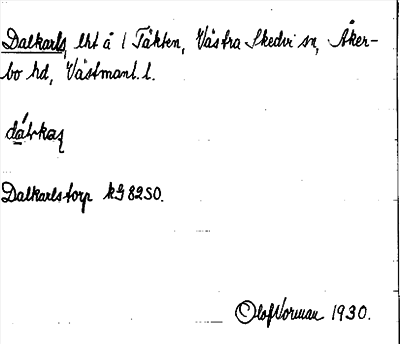 Dalkarls, lht å 1 Täkten, Västra Skedvi sn, Åker-
bo hd, Västmanl. l.
Dalkarlstorp kG 82 SO.
Olof Norman 1930.